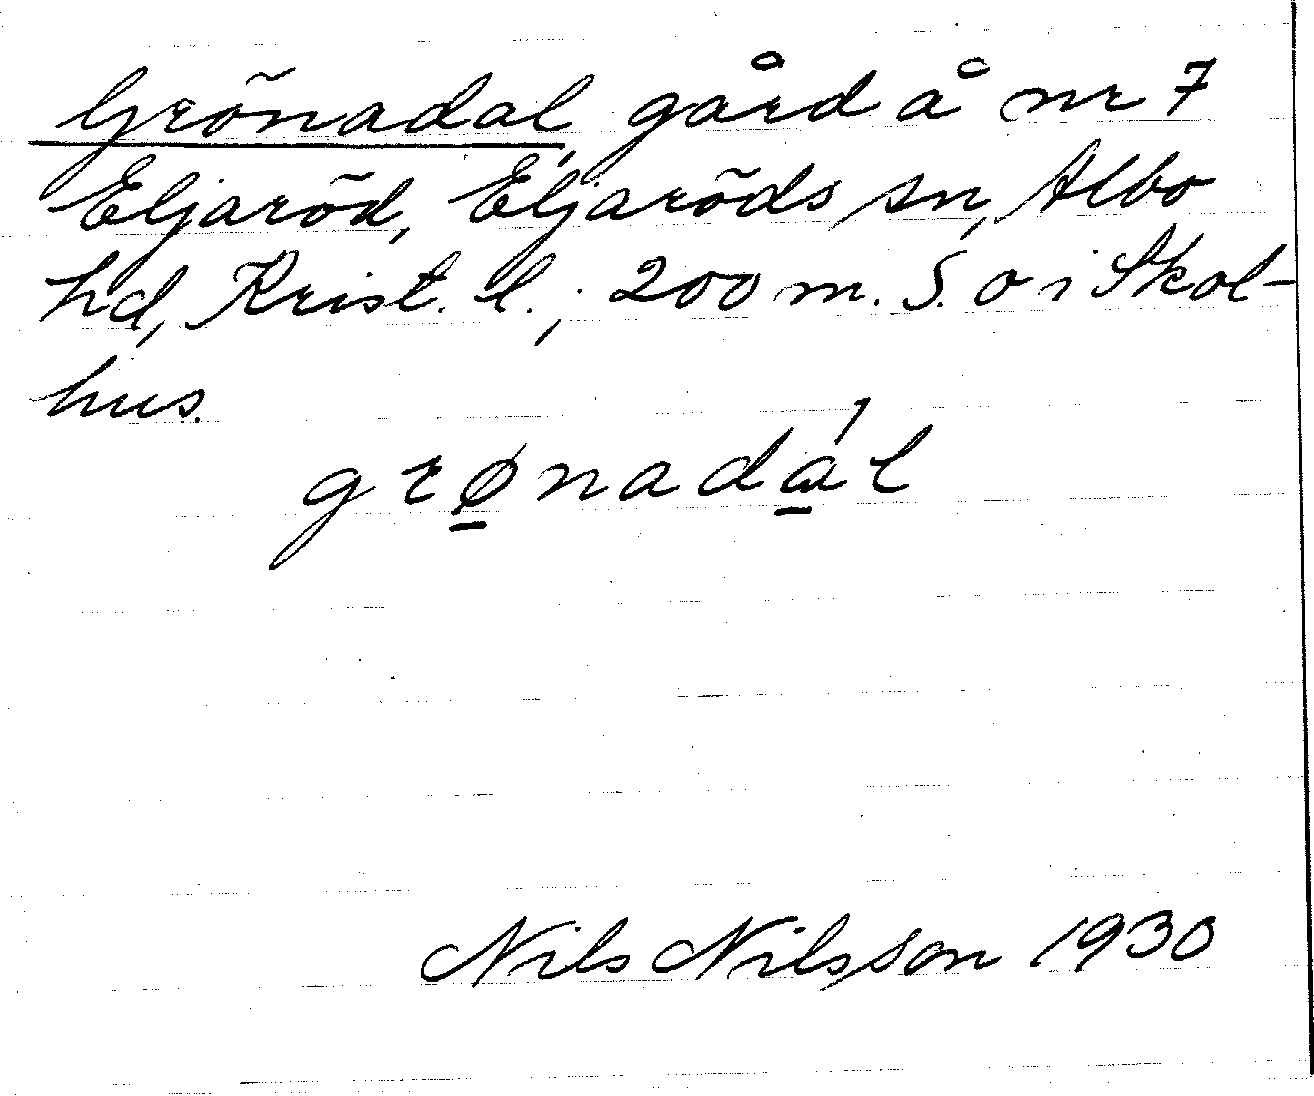 Grönadal, gård å nr 7
Eljaröd, Eljaröds sn, Albo
hd, Krist. l.; 200 m. S. o i Skol-
hus.
grønadál
Nils Nilsson 1930